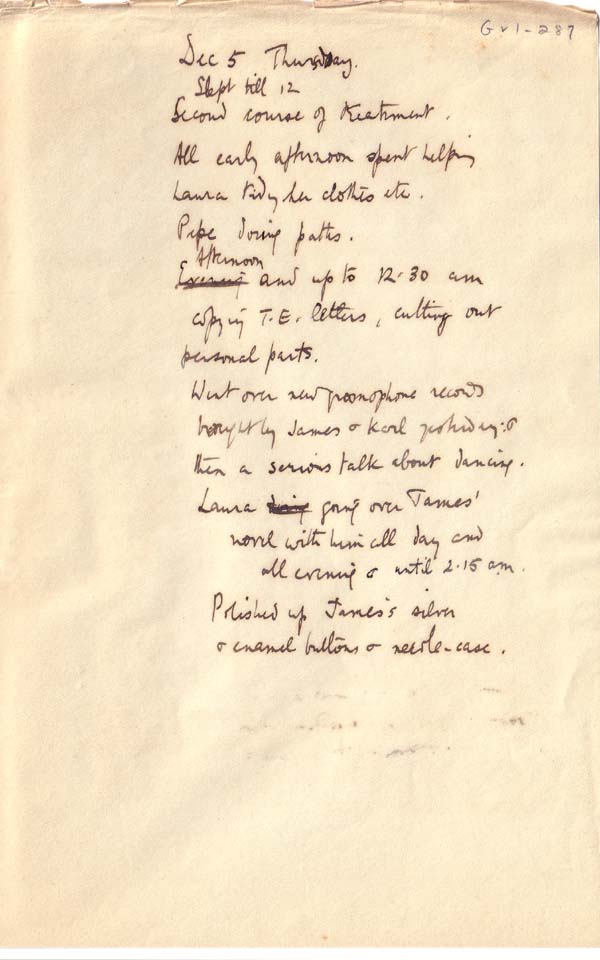 G v 1 - 287
Dec 5 Thursday.
Slept till 12
Second course of treatment.
All early afternoon spent helping
Laura tidy her clothes etc.
Pepe doing paths.
Afternoon
Evening and up to 12.30 am
copying T.E. letters, cutting out
personal parts.
Went over new gramophone records
bought by James & Karl yesterday: &
then a serious talk about dancing.
Laura going over James'
novel with him all day and
all evening & until 2.15 am.
Polished up James's silver
& enamel buttons & needle-case.